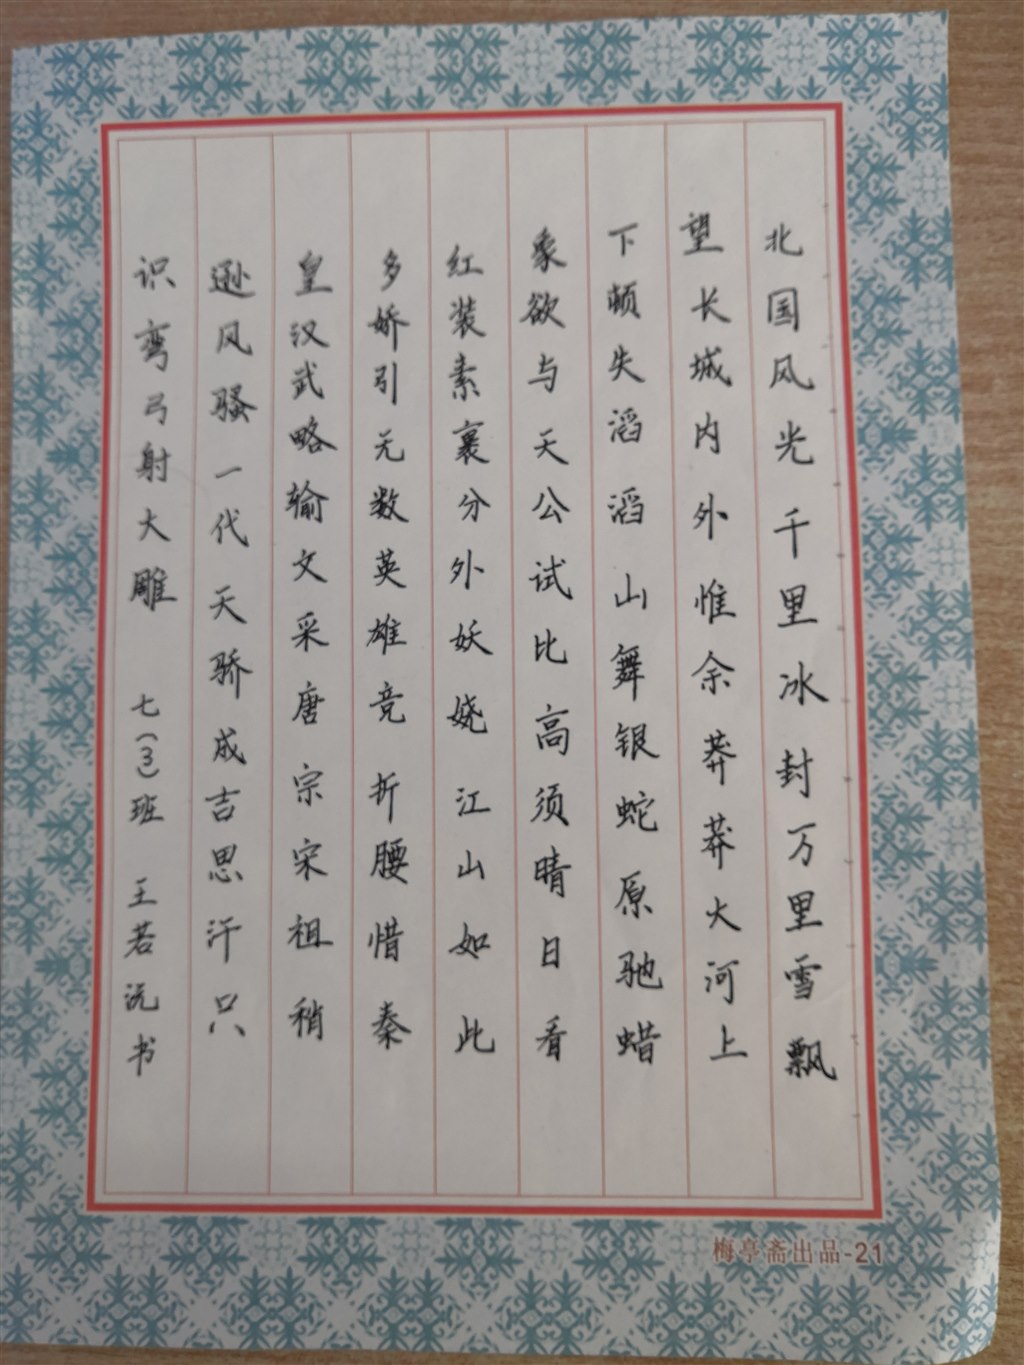 北国风光千里冰封万里雪飘
望长城内外惟余莽莽大河上
下顿失滔滔山舞银蛇原驰蜡
象欲与天公试比高须晴日看
红装素裹分外妖娆江山如此
多娇引无数英雄竞折腰惜秦
皇汉武略输文采唐宗宋祖稍
逊风骚一代天骄成吉思汗只
识弯弓射大雕 七(3)班 王若沅书
梅亭斋出品-21